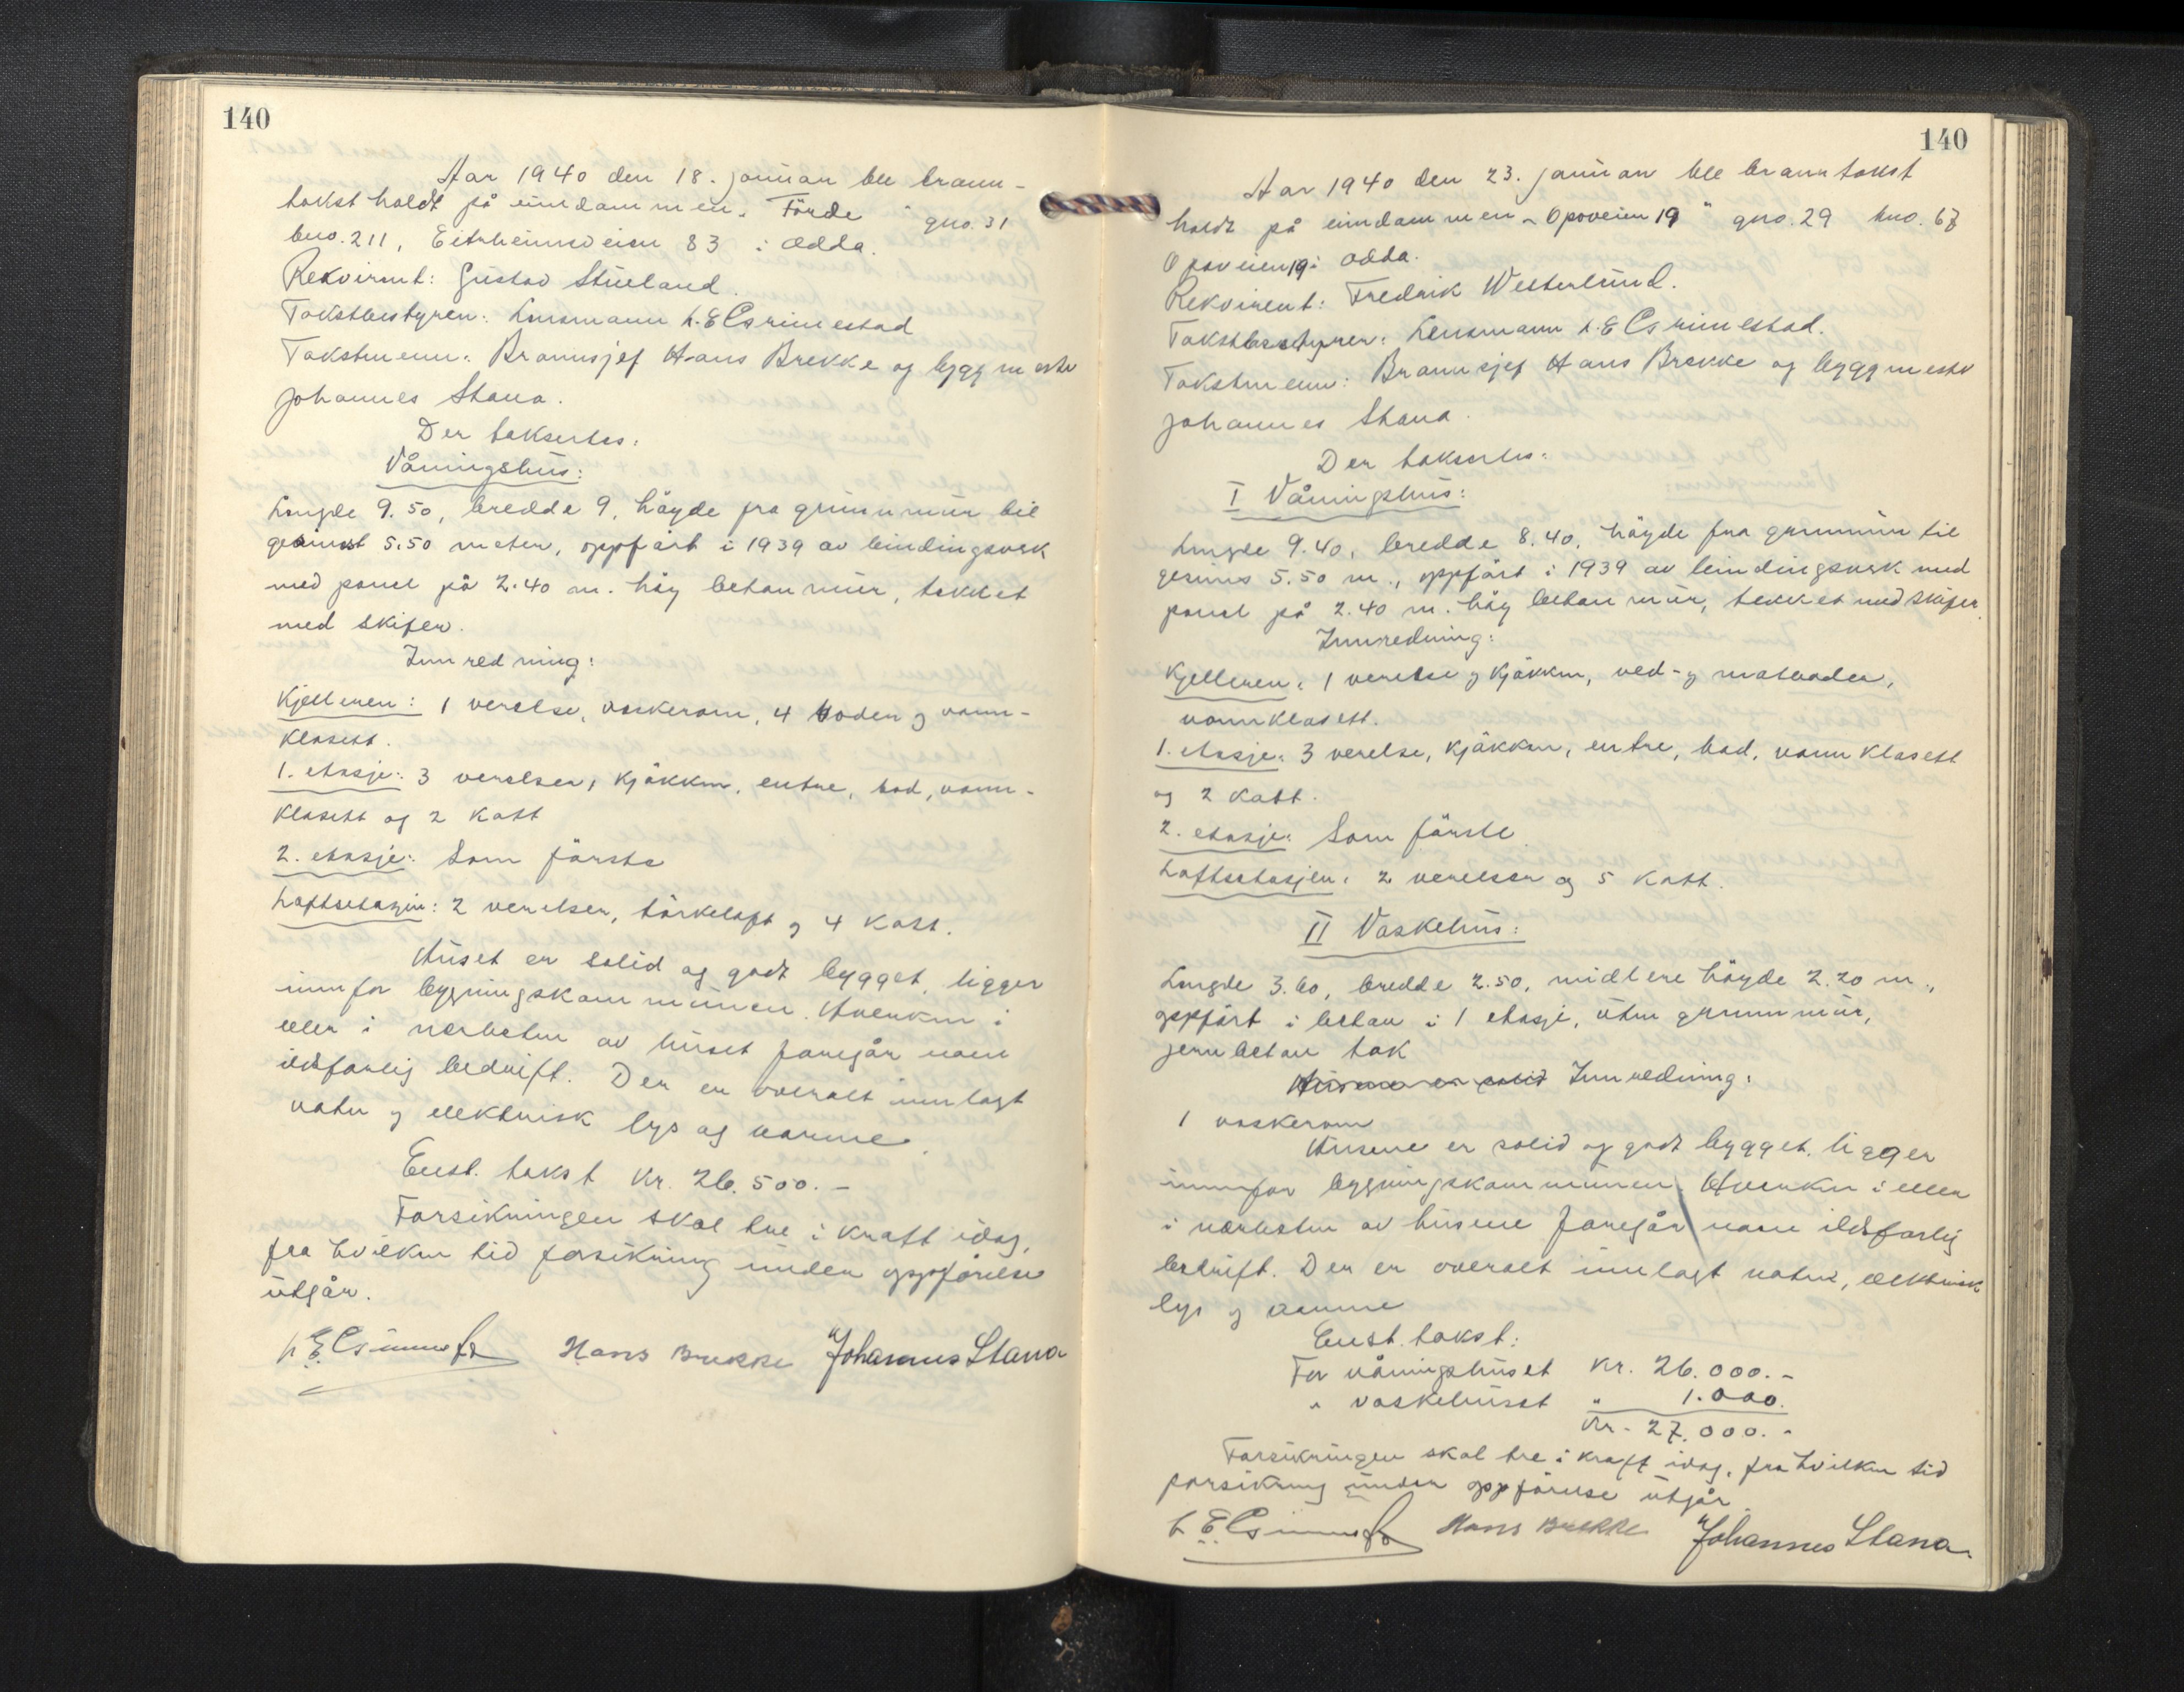 140
Aar 1940 den 18. januar ble brann-
takst holdt på eiendommen "Förde" gno. 31
bno. 211, Eitrheimsveien 83 i Odda.
Rekvirent: Gustav Stueland.
Takstbestyrer: Lensmann L. E. Grimestad
Takstmenn: Brannsjef Hans Brekke og byggmester
Johannes Stana.
Der taksertes:
Våningshus:
Lengde 9.50, bredde 9, höyde fra grunnmur til
gesimst 5.50 meter, oppfört i 1939 av bindingsverk
med panel på 2.40 m. höy betonmur, tekket
med skifer.
Innredning:
Kjelleren: 1 verelse, vaskerom, 4 boder og vann-
klosett.
1. etasje: 3 verelser, kjökken, entre, bad, vann-
klosett og 2 kott
2. etasje: Som förste
Loftsetasjen: 2 verelser, törkeloft og 4 kott.
Huset er solid og godt bygget, ligger
innfor bygningskommunen. Hverken i
eller i nærheten av huset foregår noen
ildsfarlig bedrift. Der er overalt innlagt
vatn og elektrisk lys og varme.
Enst. takst kr. 26.500.-
Forsikringen skal tre i kraft idag,
fra hvilken tid forsikring under oppförelse
utgår.
L. E. Grimestad Hans Brekke Johannes Stana
140
Aar 1940 den 23. januar ble branntakst
holdt på eiendommen "Opoveien 19" gno. 29 bno. 67
Opoveien 19 i Odda.
Rekvirent: Fredrik Westerlund.
Takstbestyrer: Lensmann L. E. Grimestad.
Takstmenn: Brannsjef Hans Brekke og byggmester
Johannes Stana.
Der taksertes:
I Våningshus:
Lengde 9.40, bredde 8.40, höyde fra grunnmur til
gesims 5.50 m., oppfört i 1939 av bindingsverk med
panel på 2.40 m. höy betonmur, tekket med skifer.
Innredning:
Kjelleren: 1 verelse og kjökken, ved- og matboder,
vannklosett.
1. etasje: 3 verelse, kjökken, entre, bad, vannklosett
og 2 kott.
2. etasje: Som förste.
Loftsetasjen: 2 verelser og 5 kott.
II Vaskehus:
Lengde 3.60, bredde 2.50, midlere höyde 2.20 m.,
oppfört i beton i 1 etasje, uten grunnmur,
jernbeton tak
Husene er solid Innredning:
1 vaskerom
Husene er solid og godt bygget, ligger
innfor bygningskommunen. Hverken i eller
i nærheten av husene foregår noen ildsfarlig
bedrift. Der er overalt innlagt vatn, elektrisk
lys og varme
Enst. takst:
For våningshuset kr. 26.000.-
" vaskehuset " 1.000.
Kr. 27.000.-
Forsikringen skal tre i kraft idag, fra hvilken tid
forsikring under oppförelse utgår.
L. E. Grimestad Hans Brekke Johannes Stana